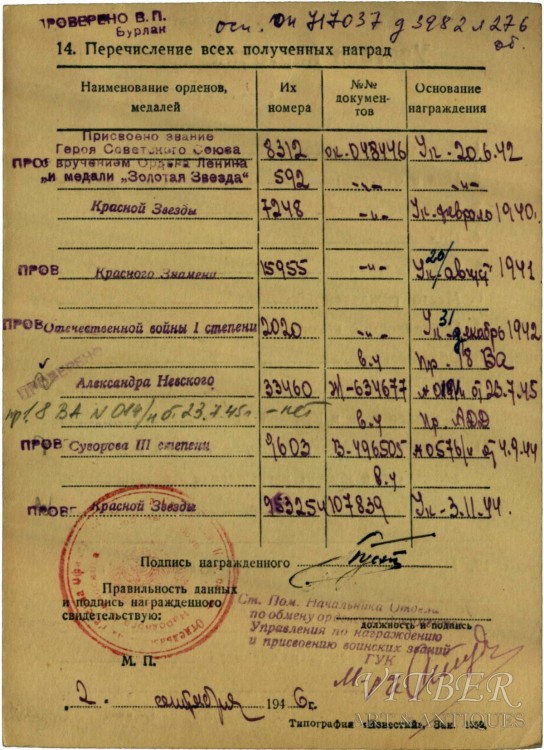 ПРОВЕРЕНО В.П.
Бурлак
осн. Оп 717037 д 3982 л 276
об.
14. Перечисление всех полученных наград
Наименование орденов, медалей
Их номера
№№ документов
Основание награждения
Присвоено звание
Героя Советского Союза 8312 ок-048446 Ук-20.6.42
ПРОВ с вручением Ордена Ленина
„и медали „Золотая Звезда“ 592 -„- -„-
Красной Звезды 7248 -„- Ук февраль 1940г.
20/
ПРОВ Красного Знамени 15955 -„- Ук-август 1941
31
ПРОВ Отечественной войны I степени 2020 -„- Ук-декабрь 1942
ПРОВЕРЕНО в.у пр. 18 ВА
Александра Невского 33460 Ж-634677 от 23.7.45
пр. 18 ВА N 014/н б. 23.7.45г - нет в.у Пр. АДД
ПРОВ Суворова III степени 9603 В-496505 № 057б/н от 4.9.44
в.у
ПРОВ Красной Звезды 953254 107839 Ук-3.11.44
Подпись награжденного
Правильность данных
и подпись награжденного
свидетельствую:
Ст. Пом. Начальника Отдела
по обмену
должность и подпись
Управления по награждению
и присвоению воинских званий
ГУК
М. П.
„ 2 „ сентября 1946г.
Типография «Известий», Зак.
VITBER
ART & ANTIQUES